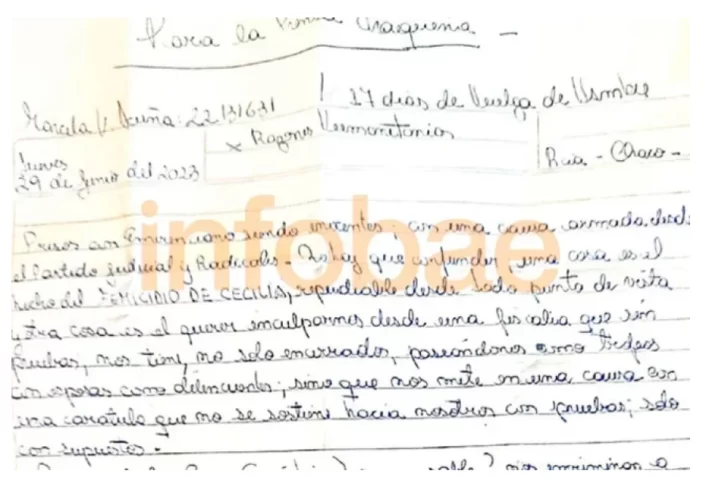 Para la Prensa Chaqueña -
17 días de Huelga de Hambre
Marcela V. Acuña: 22131631
x Razones Humanitarias
Jueves
29 de Junio del 2023
Rcia - Chaco -
infobae
Presos Emerenciano siendo inocentes, con una causa armada desde
el Partido judicial y Radicales - No hay que confundir, una cosa es el
hecho del FEMICIDIO DE CECILIA, repudiable desde todo punto de vista
y otra cosa es el querer inculparnos desde una fiscalía que sin
pruebas, nos tiene, no solo encerrados, paseándonos como trofeos
con esposas como delincuentes; sino que nos mete en una causa con
una caratula que no se sostiene hacia nosotros con pruebas; solo
con supuestos.-
nos incriminan a